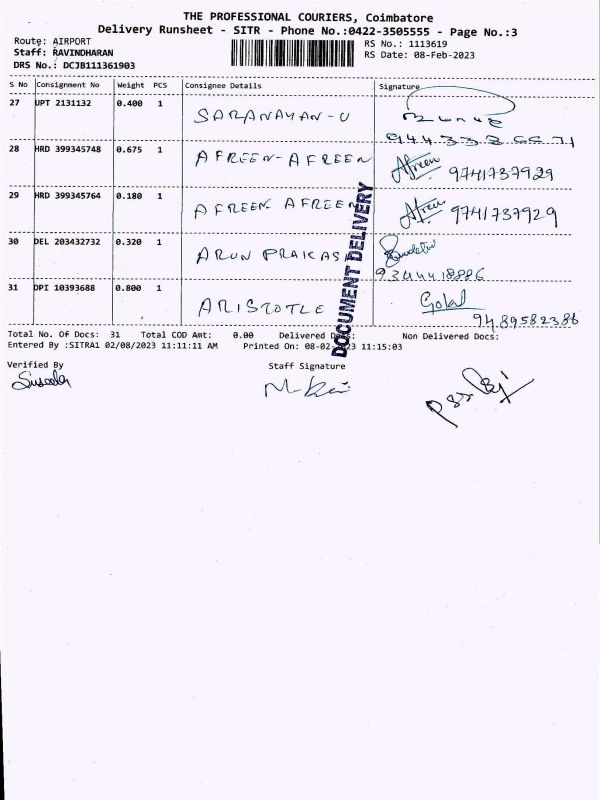 THE PROFESSIONAL COURIERS, Coimbatore
Delivery Runsheet - SITR - Phone No.:0422-3505555 - Page No.:3
Route: AIRPORT
Staff: RAVINDHARAN
DRS No.: DCJB111361903
RS No.: 1113619
RS Date: 08-Feb-2023
S No Consignment No Weight PCS Consignee Details Signature
27 UPT 2131132 0.400 1 SARANAYAN-U
28 HRD 399345748 0.675 1 AFREEN-AFREEN Afreen 9741737929
29 HRD 399345764 0.180 1 AFREEN AFREEN Afreen 9741737929
30 DEL 203432732 0.320 1 ARUN PRAKAS
9344418886
31 DPI 10393688 0.800 1 ARISTOTLE Gokul
9489582388
DOCUMENT DELIVERY
Total No. Of Docs: 31 Total COD Amt: 0.00 Delivered Docs: Non Delivered Docs:
Entered By :SITRA1 02/08/2023 11:11:11 AM Printed On: 08-02-2023 11:15:03
Verified By
Staff Signature
Suseela